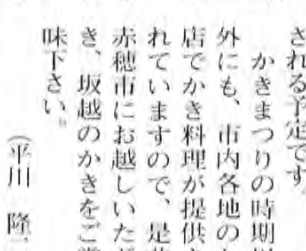 される予定です
かきまつりの時期
外にも、市内各地の
店でかき料理が提供
れていますので、是
赤穂市にお越しいた
き、坂越のかきをご
味下さい。
(平川 隆